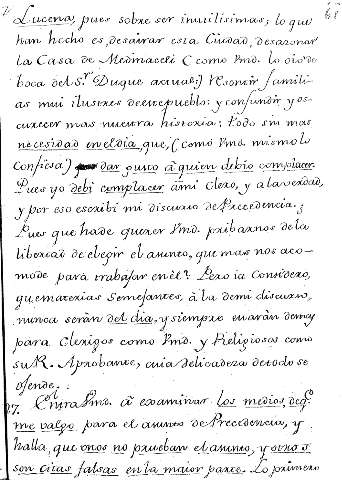 Lucena, pues sobre ser inutilisimas, lo que
han hecho es, desairar esta Ciudad, desazonar
la Casa de Medinaceli (como Vmd. lo oió de
boca del Sr. Duque actual;) resentir famili-
as mui ilustres de este pueblo: y confundir y os-
curecer mas nuestra historia: todo sin mas
necesidad en el dia, que, (como Vmd. mismo lo
confiesa) dar gusto á quien debio complacer.
Pues yo debi complacer á mi Clero, y a la verdad,
y por eso escribi mi discurso de Precedencia.
Pues que ha de querer Vmd. pribarnos de la
libertad de elegir el asunto, que mas nos aco-
mode para trabajar en èl? Pero ia considero,
que materias semejantes, à la de mi discurso,
nunca serán del dia, y siempre estarán demas
para Clerigos como Vmd. y Religiosos como
su R. Aprobante, cuia delicadeza de todo se
ofende.
17. Entra Vmd. à examinar los medios, de q.
me valgo para el asunto de Precedencia, y
halla, que unos no prueban el asunto, y otros
son citas falsas en la maior parte. Lo primero